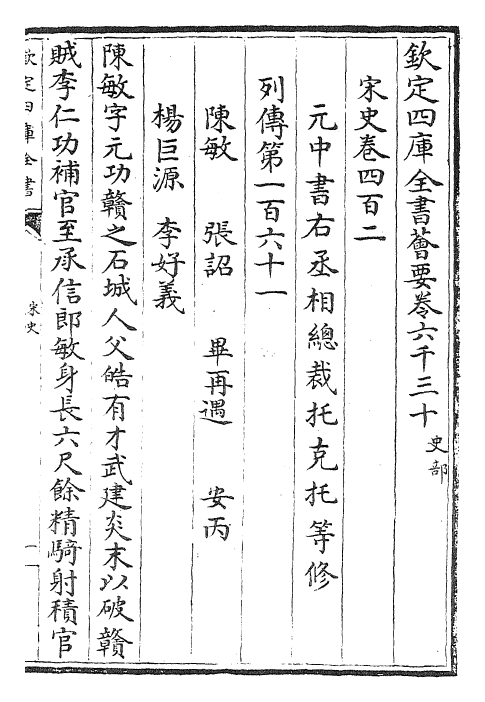 欽定四庫全書薈要卷六千三十 史部
宋史卷四百二
元中書右丞相總裁托克托等修
列傳第一百六十一
陳敏 張詔 畢再遇 安丙
楊巨源 李好義
陳敏字元功贛之石城人父皓有才武建炎末以破贛
賊李仁功補官至承信郎敏身長六尺餘精騎射積官
欽定四庫全書
宋史
一